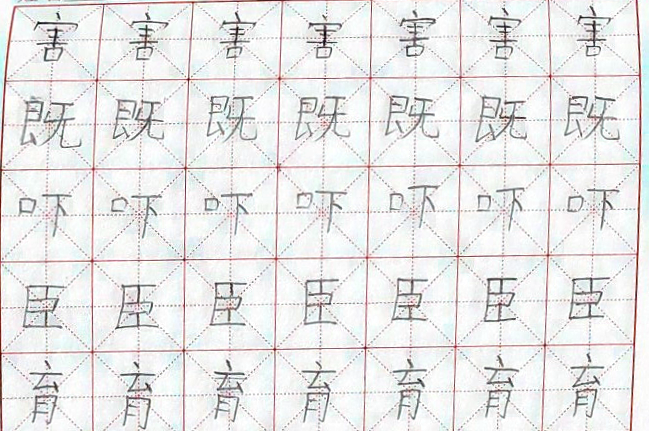 害害害害害害害
既既既既既既既
吓吓吓吓吓吓吓
臣臣臣臣臣臣臣
育育育育育育育